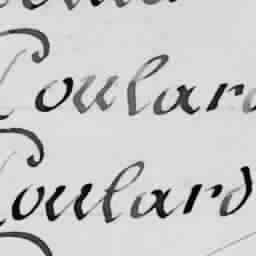 Coulard
Coulard